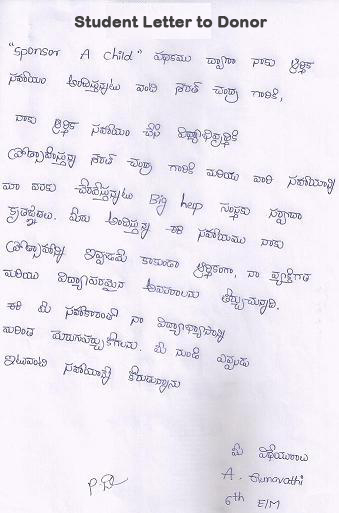 Student Letter to Donor
"Sponsor A child" పథకము ద్వారా నాకు ఆర్థిక
సహాయం అందిస్తున్నటు వంటి శరత్ చంద్ర గారికి,
నాకు ఆర్థిక సహాయం చేసి విద్యాభివృద్ధికి
ప్రోత్సాహిస్తున్న శరత్ చంద్ర గారికి మరియు వారి సహాయాన్ని
మా వరకు చేరవేస్తున్నటు Big help సంస్థకు
కృతజ్ఞతలు. మీరు అందిస్తున్న ఈ సహాయము నాకు
ప్రోత్సాహాన్ని ఇవ్వడమే కాకుండా ఆర్థికంగా, నా వ్యక్తిగత
మరియు విద్యాపరమైన అవసరాలను తీర్చుచున్నది.
ఈ మీ సహకారంతో నా విద్యాభ్యాసాన్ని
మరింత మెరుగుపర్చుకోగలను. మీ నుండి ఎప్పుడు
ఇటువంటి సహాయాన్నే కోరుచున్నాను
మీ విధేయురాలు
A. Gunavathi
6th E/M